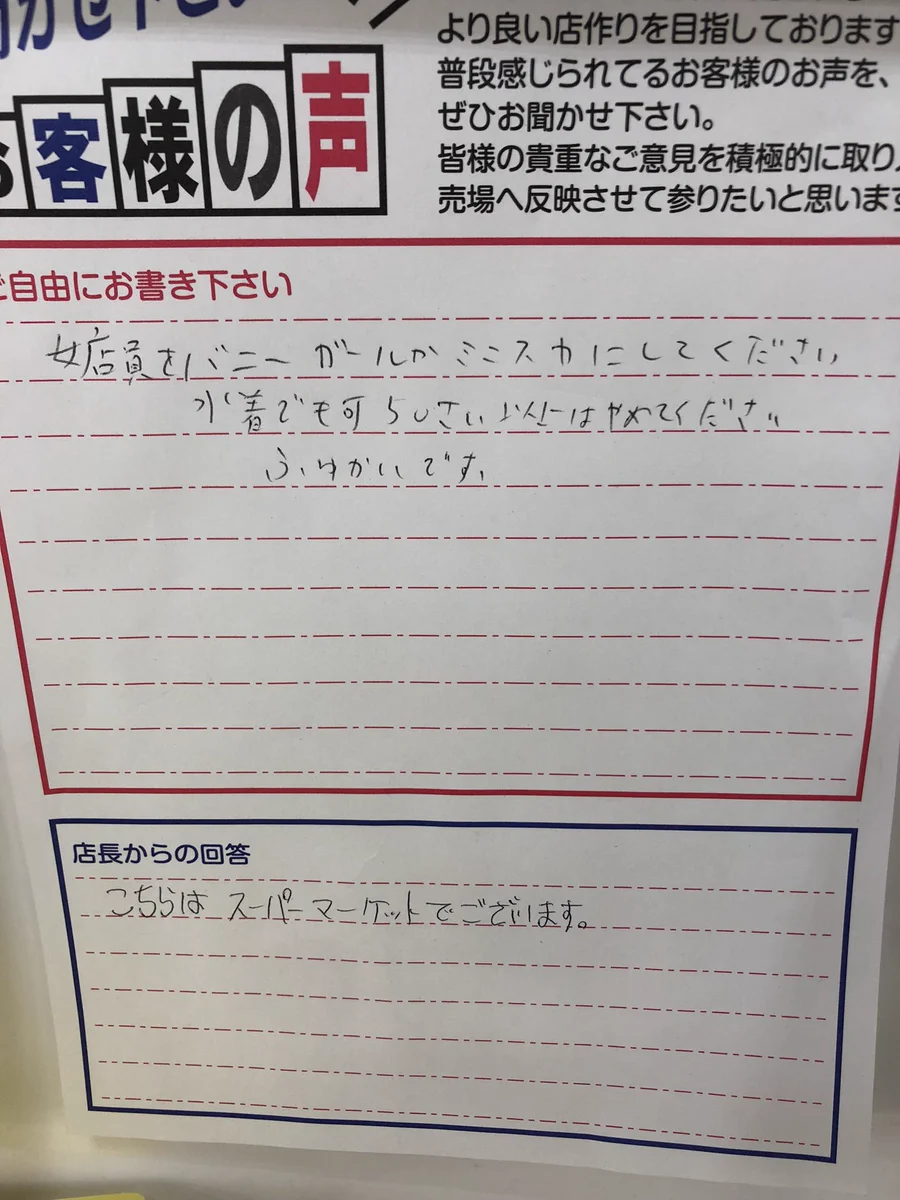 聞かせ下さい
お客様の声
より良い店作りを目指しております
普段感じられてるお客様のお声を、
ぜひお聞かせ下さい。
皆様の貴重なご意見を積極的に取り入
売場へ反映させて参りたいと思います
ご自由にお書き下さい
女店員をバニーガールかミニスカにしてください
水着でも可 50さい以上はやめてください
ふゆかいです。
店長からの回答
こちらはスーパーマーケットでございます。